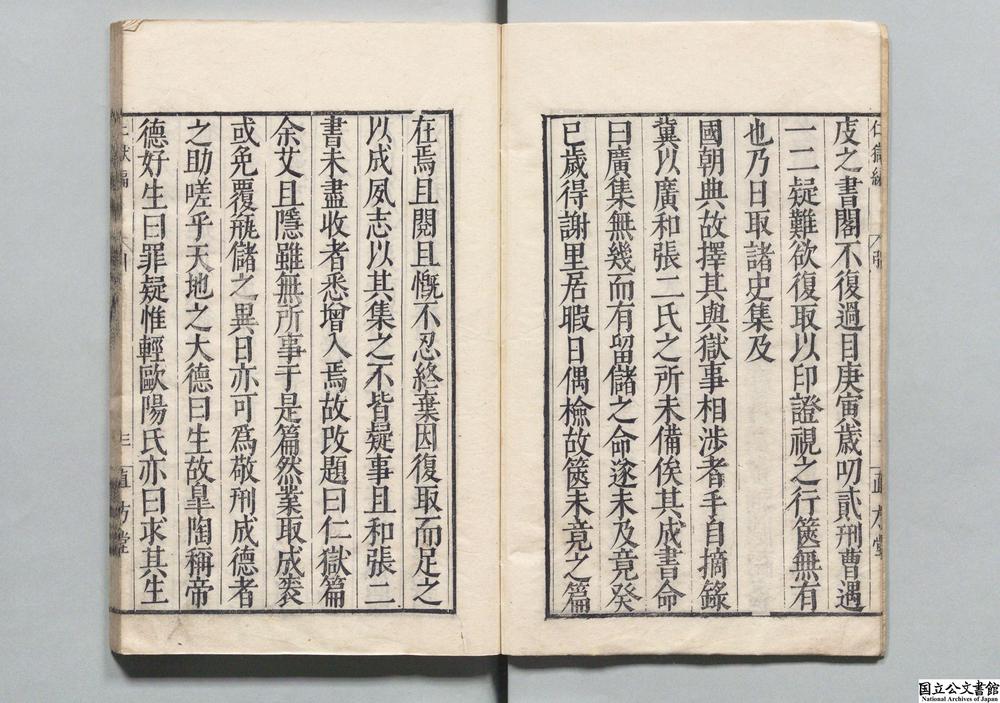 仁獄編
皮之書閣不復過目庚寅歲叨貳刑曹遇
一二疑難欲復取以印證視之行篋無有
也乃日取諸史集及
國朝典故擇其與獄事相涉者手自摘錄
冀以廣和張二氏之所未備俟其成書命
曰廣集無幾而有留儲之命遂未及竟癸
巳歲得謝里居暇日偶檢故篋未竟之篇
在焉且閱且慨不忍終棄因復取而足之
以成夙志以其集之不皆疑事且和張二
書未盡收者悉增入焉故改題曰仁獄篇
余艾且隱雖無所事于是篇然業取成袠
或免覆瓿儲之異日亦可爲敬刑成德者
之助嗟乎天地之大德曰生故臯陶稱帝
德好生曰罪疑惟輕歐陽氏亦曰求其生
直方堂
国立公文書館
National Archives of Japan